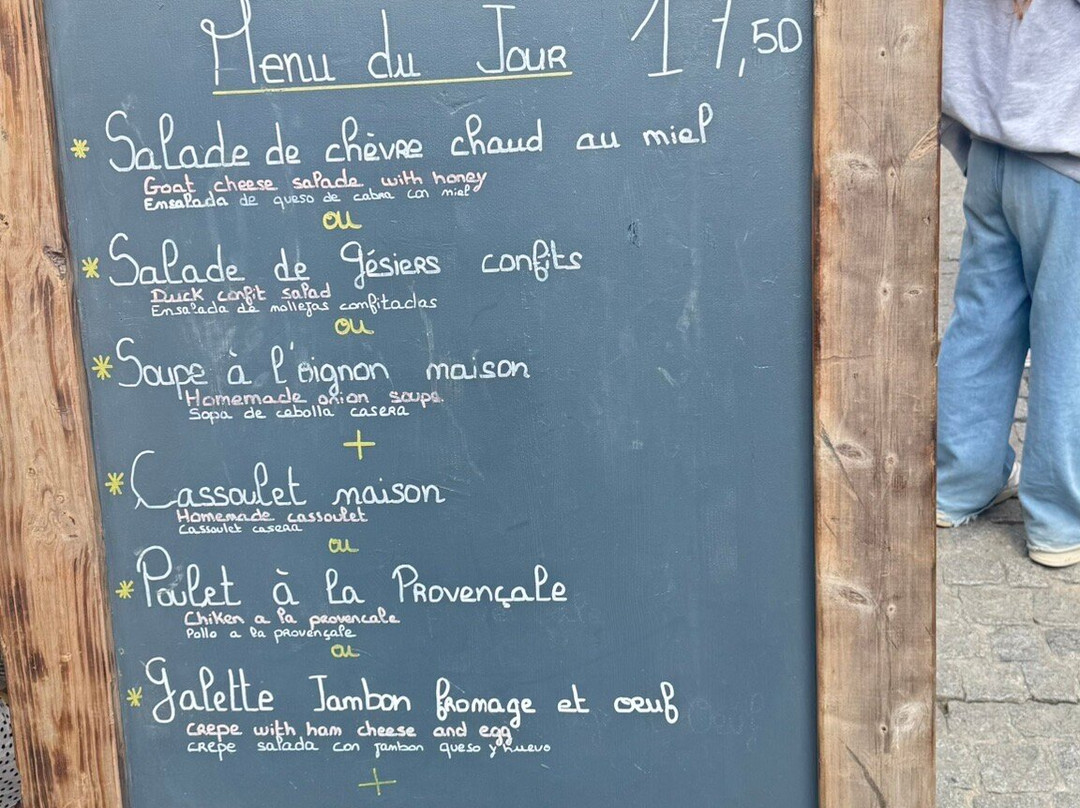 Menu du Jour 17,50
* Salade de chèvre chaud au miel
Goat cheese salade with honey
Ensalada de queso de cabra con miel
ou
* Salade de gésiers confits
Duck confit salad
Ensalada de mollejas comfitadas
ou
* Soupe à l'oignon maison
Homemade onion soupe
Sopa de cebolla casera
+
* Cassoulet maison
Homemade cassoulet
Cassoulet casera
ou
* Poulet à la Provençale
Chiken a la provencale
Pollo a la provençale
ou
* Galette Jambon fromage et oeuf
crepe with ham cheese and egg
crepe salada con jambon queso y huevo
+